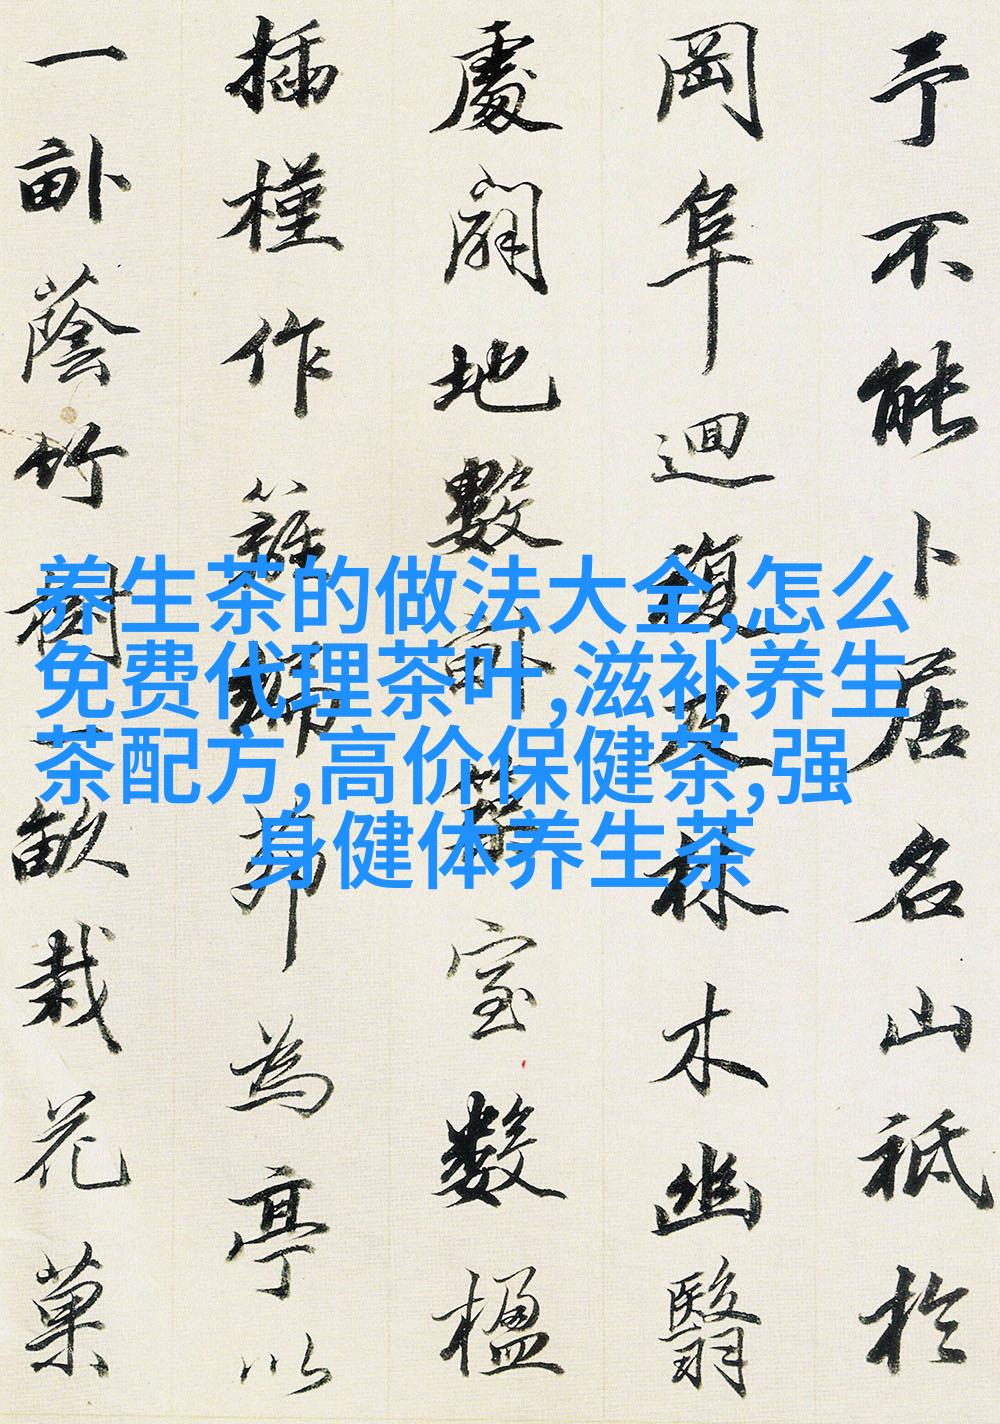 予不能卜居名山祗於
岡阜迴複及林木幽翳
處闢地數畝築室數楹
插槿作籬編茆為亭以
一畝蔭竹樹一畝栽花菓
养生茶的做法大全,怎么
免费代理茶叶,滋补养生
茶配方,高价保健茶,强
身健体养生茶